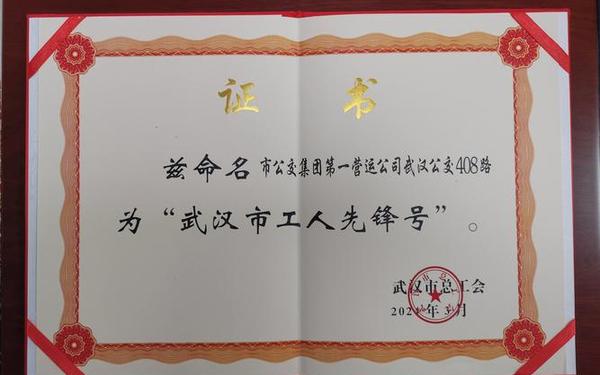 证 书
兹命名 市公交集团第一营运公司武汉公交408路
为“武汉市工人先锋号”。
武汉市总工会
2021年3月